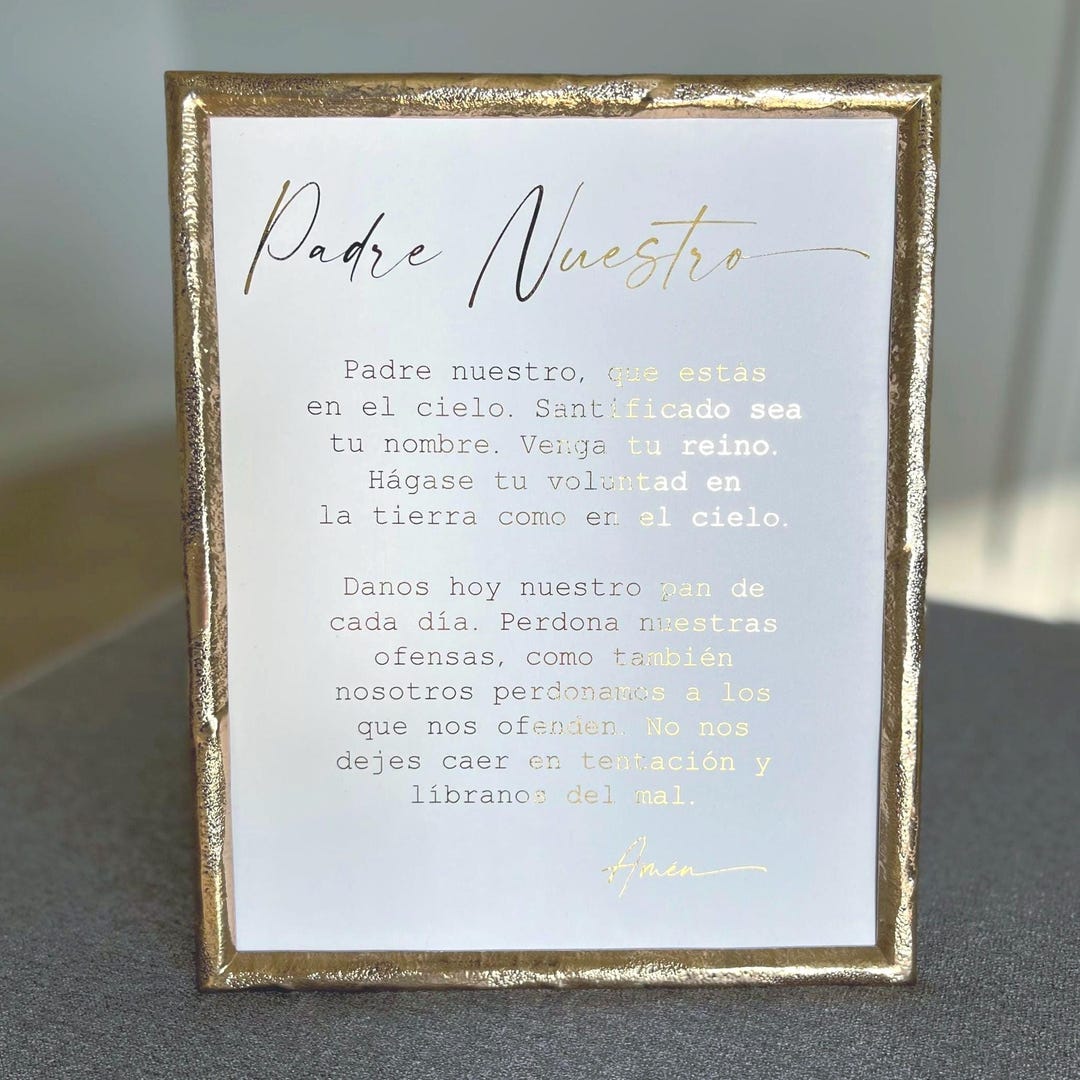 Padre Nuestro
Padre nuestro, que estás
en el cielo. Santificado sea
tu nombre. Venga tu reino.
Hágase tu voluntad en
la tierra como en el cielo.
Danos hoy nuestro pan de
cada día. Perdona nuestras
ofensas, como también
nosotros perdonamos a los
que nos ofenden. No nos
dejes caer en tentación y
líbranos del mal.
Amén